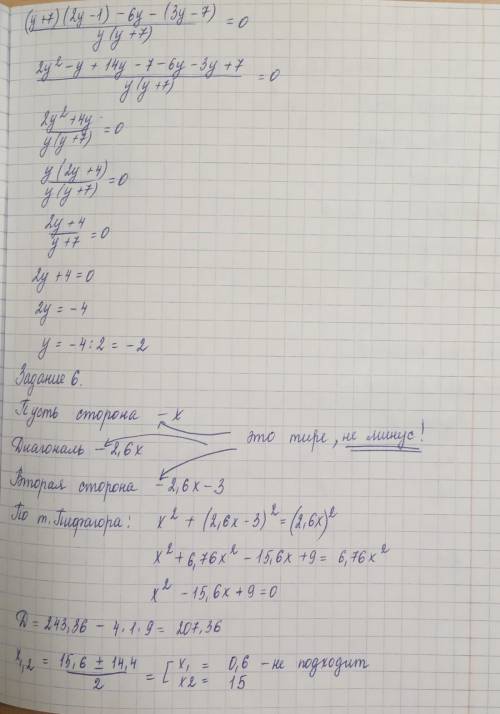 (y+7)(2y-1) - 6y - (3y-7) / y(y+7) = 0
2y² - y + 14y - 7 - 6y - 3y + 7 / y(y+7) = 0
2y² + 4y / y(y+7) = 0
y(2y+4) / y(y+7) = 0
2y+4 / y+7 = 0
2y + 4 = 0
2y = -4
y = -4 : 2 = -2
Задание 6.
Пусть сторона - x
это тире, не минус!
Диагональ - 2,6x
Вторая сторона - 2,6x-3
По т. Пифагора: x² + (2,6x-3)² = (2,6x)²
x² + 6,76x² - 15,6x + 9 = 6,76x²
x² - 15,6x + 9 = 0
D = 243,36 - 4·1·9 = 207,36
x1,2 = 15,6 ± 14,4 / 2 = [ x₁ = 0,6 - не подходит
x2 = 15